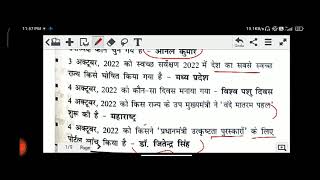 11:57 PM
19.1KB/s
चुने गए हैं – अनिल कुमार
3 अक्टूबर, 2022 को स्वच्छ सर्वेक्षण 2022 में देश का सबसे स्वच्छ
राज्य किसे घोषित किया गया है – मध्य प्रदेश
4 अक्टूबर, 2022 को कौन-सा दिवस मनाया गया – विश्व पशु दिवस
4 अक्टूबर, 2022 को किस राज्य के उप मुख्यमंत्री ने 'वंदे मातरम पहल'
शुरू की है – महाराष्ट्र
4 अक्टूबर, 2022 को किसने 'प्रधानमंत्री उत्कृष्टता पुरस्कारों' के लिए
पोर्टल लॉन्च किया है – डॉ. जितेन्द्र सिंह
1/9